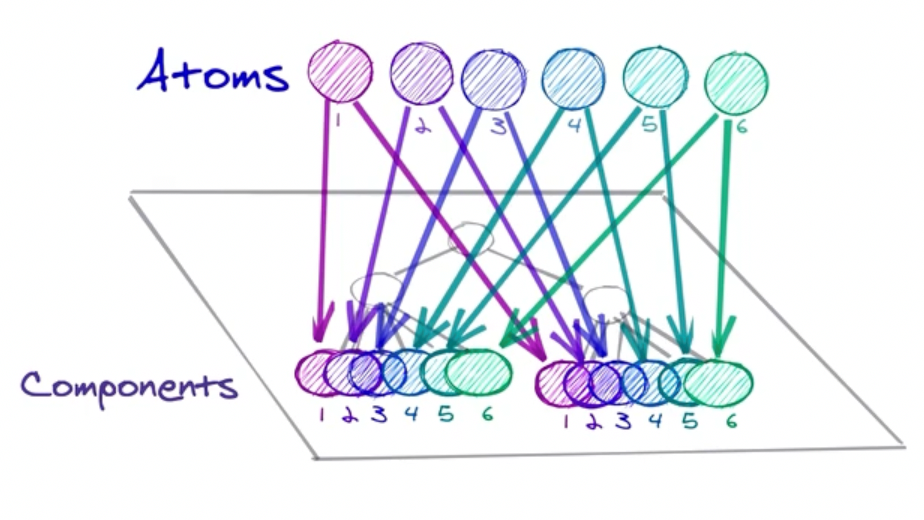 Atoms
1 2 3 4 5 6
Components
1 2 3 4 5 6 1 2 3 4 5 6